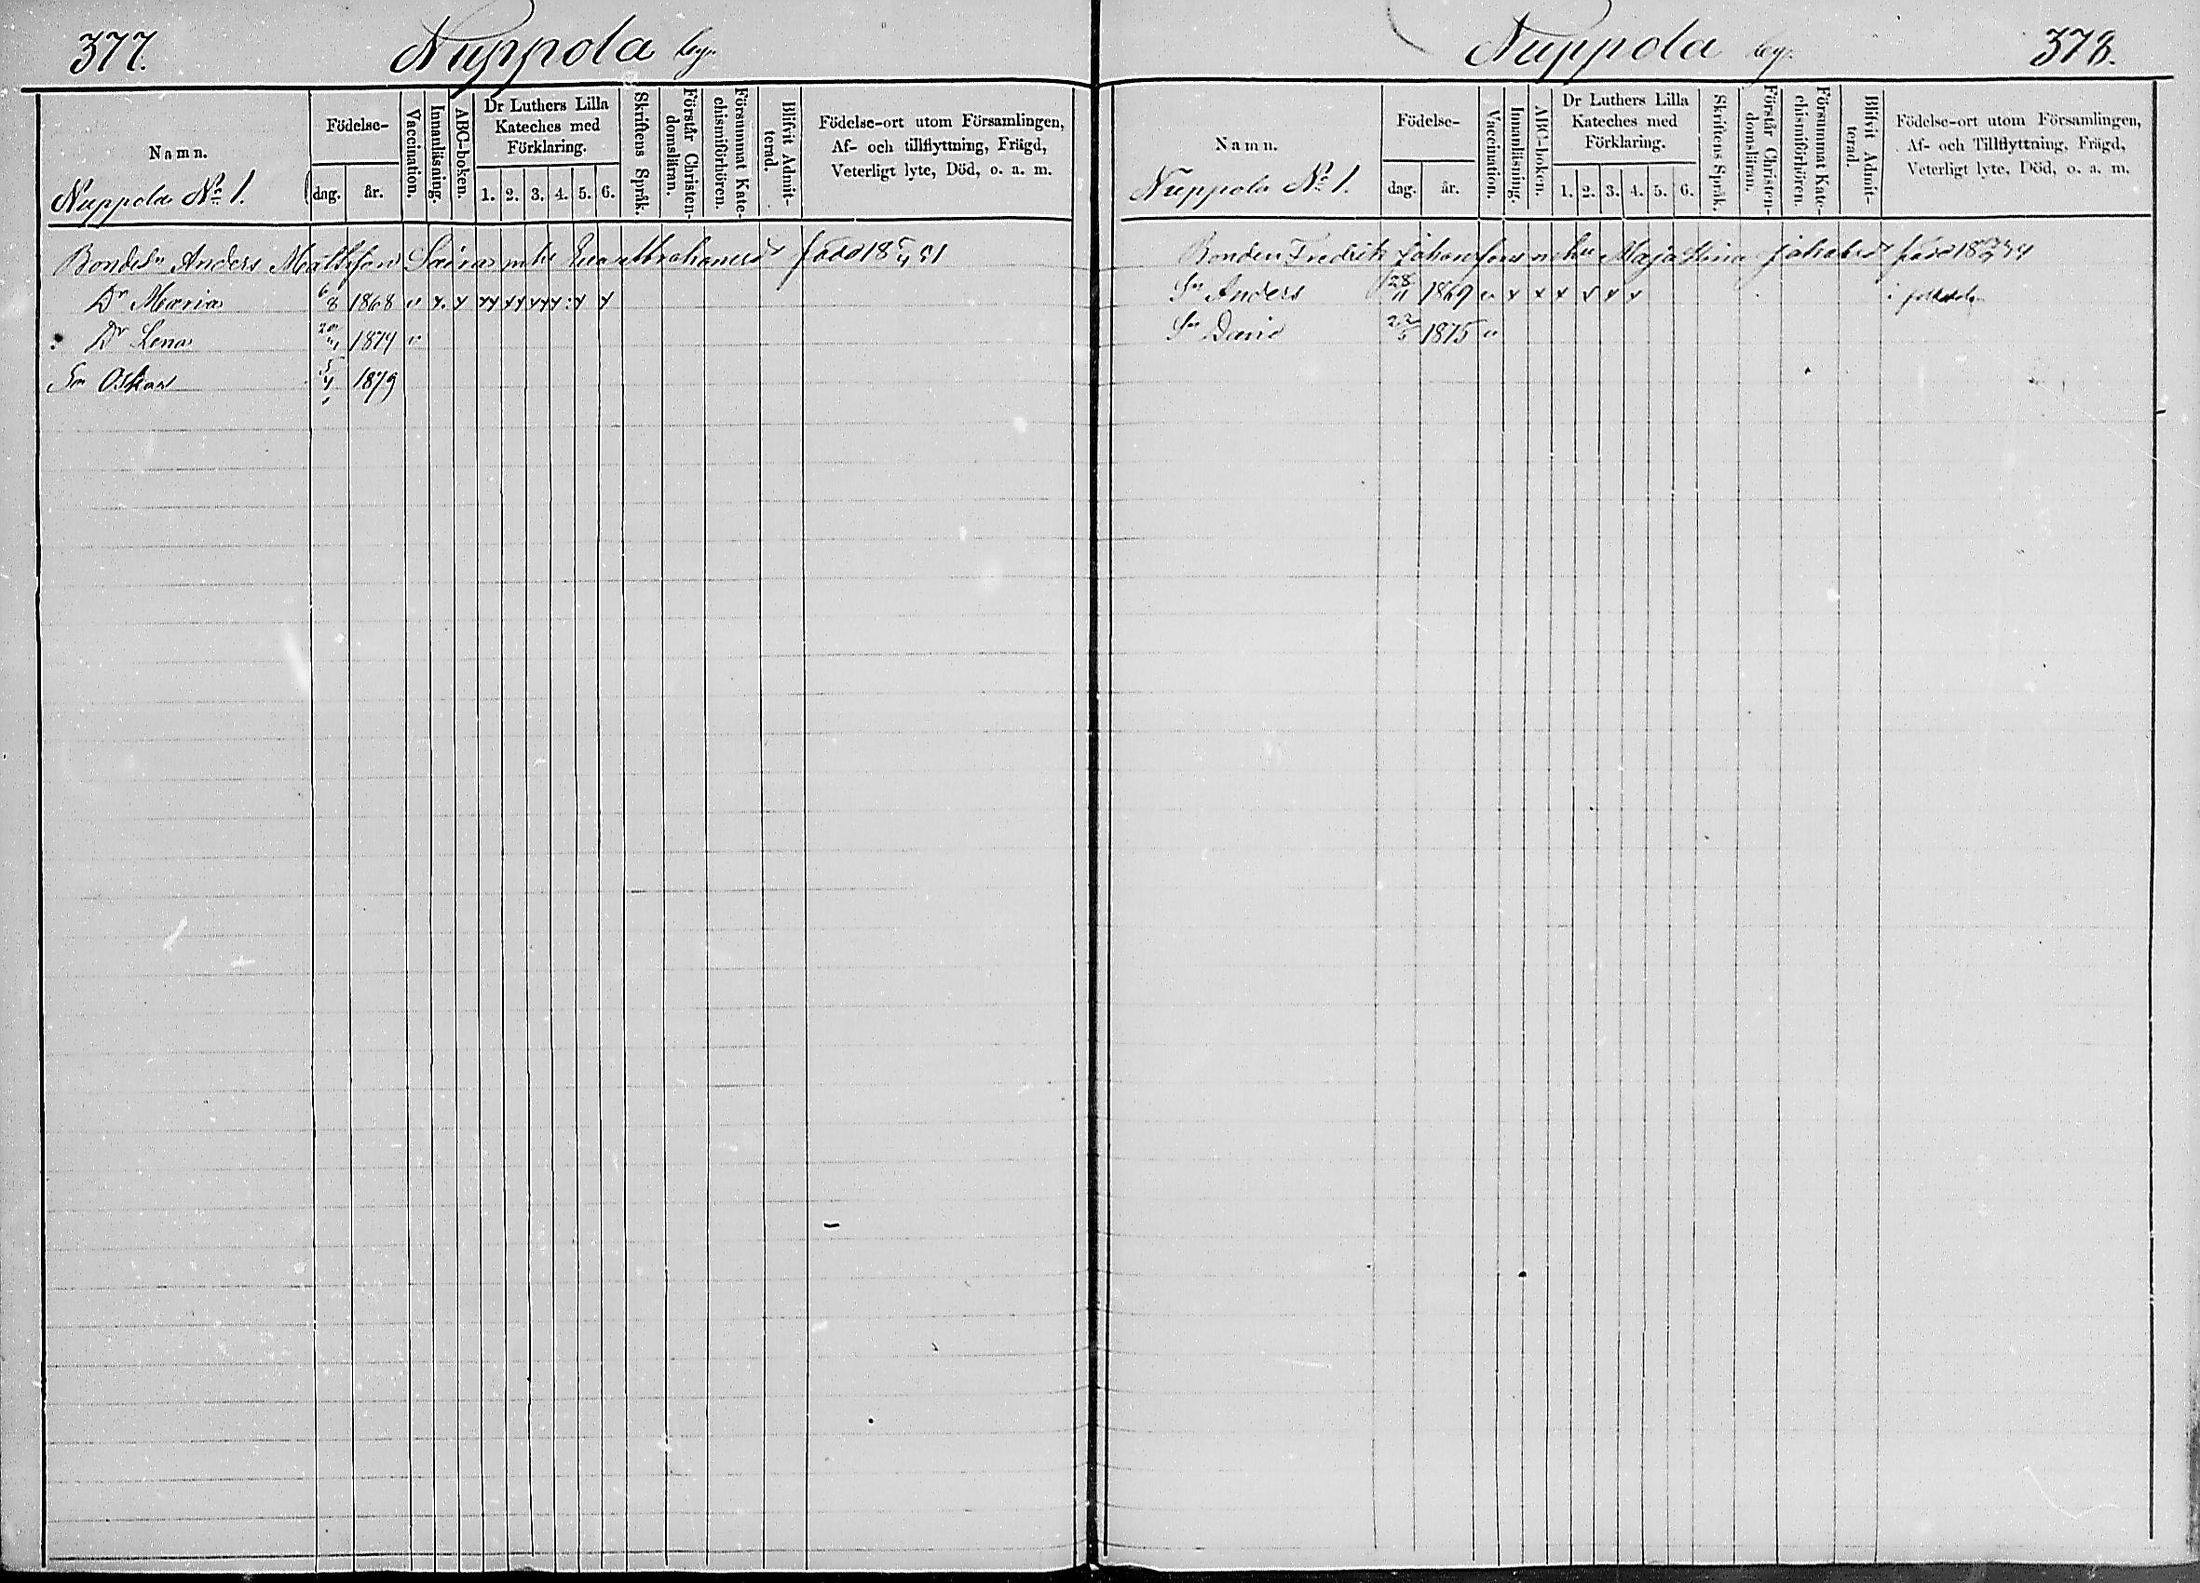 377.
Nuppola by.
Namn.
Nuppola No 1.
Födelse-
dag.
år.
Vaccination.
Innanläsning.
ABC-boken.
Dr Luthers Lilla
Kateches med
Förklaring.
1. 2. 3. 4. 5. 6.
Skriftens Språk.
Förstår Christen-
domsläran.
Försummat Kate-
chismiförhören.
Blifvit Admit-
terad.
Födelse-ort utom Församlingen,
Af- och tillflyttning, Frägd,
Veterligt lyte, Död, o. a. m.
Anders Mattsson
Dr Maria 6/8 1868 v x x xx xx xx xx x x
Dr Lena 1874 v
Sn Oskar 5/4 1879
Nuppola by. 378.
Namn.
Nuppola No 1.
Födelse-
dag.
år.
Vaccination.
Innanläsning.
ABC-boken.
Dr Luthers Lilla
Kateches med
Förklaring.
1. 2. 3. 4. 5. 6.
Skriftens Språk.
Förstår Christen-
domsläran.
Försummat Kate-
chismiförhören.
Blifvit Admit-
terad.
Födelse-ort utom Församlingen,
Af- och Tillflyttning, Frägd,
Veterligt lyte, Död, o. a. m.
Bonden Fredrik Johansson o hu Maja Stina
Sn Anders 28/11 1869 v x x x x x x
Sn David 1875 v